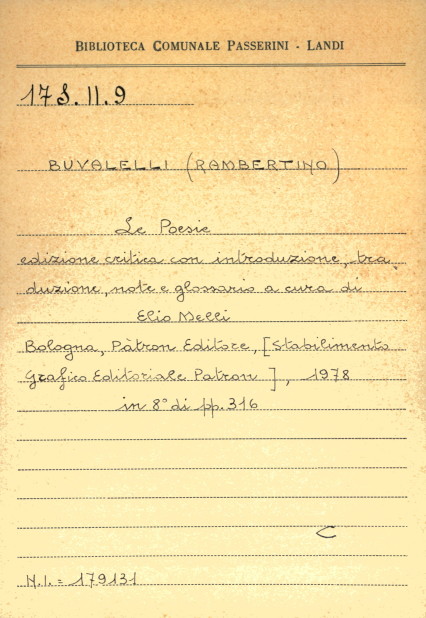 BIBLIOTECA COMUNALE PASSERINI - LANDI
17 S. II. 9
BUVALELLI (RAMBERTINO)
Le Poesie
edizione critica con introduzione, tra
duzione, note e glossario a cura di
Elio Melli
Bologna, Pàtron Editore, [Stabilimento
Grafico Editoriale Patron], 1978
in 8° di pp. 316
C
N.I. = 179131